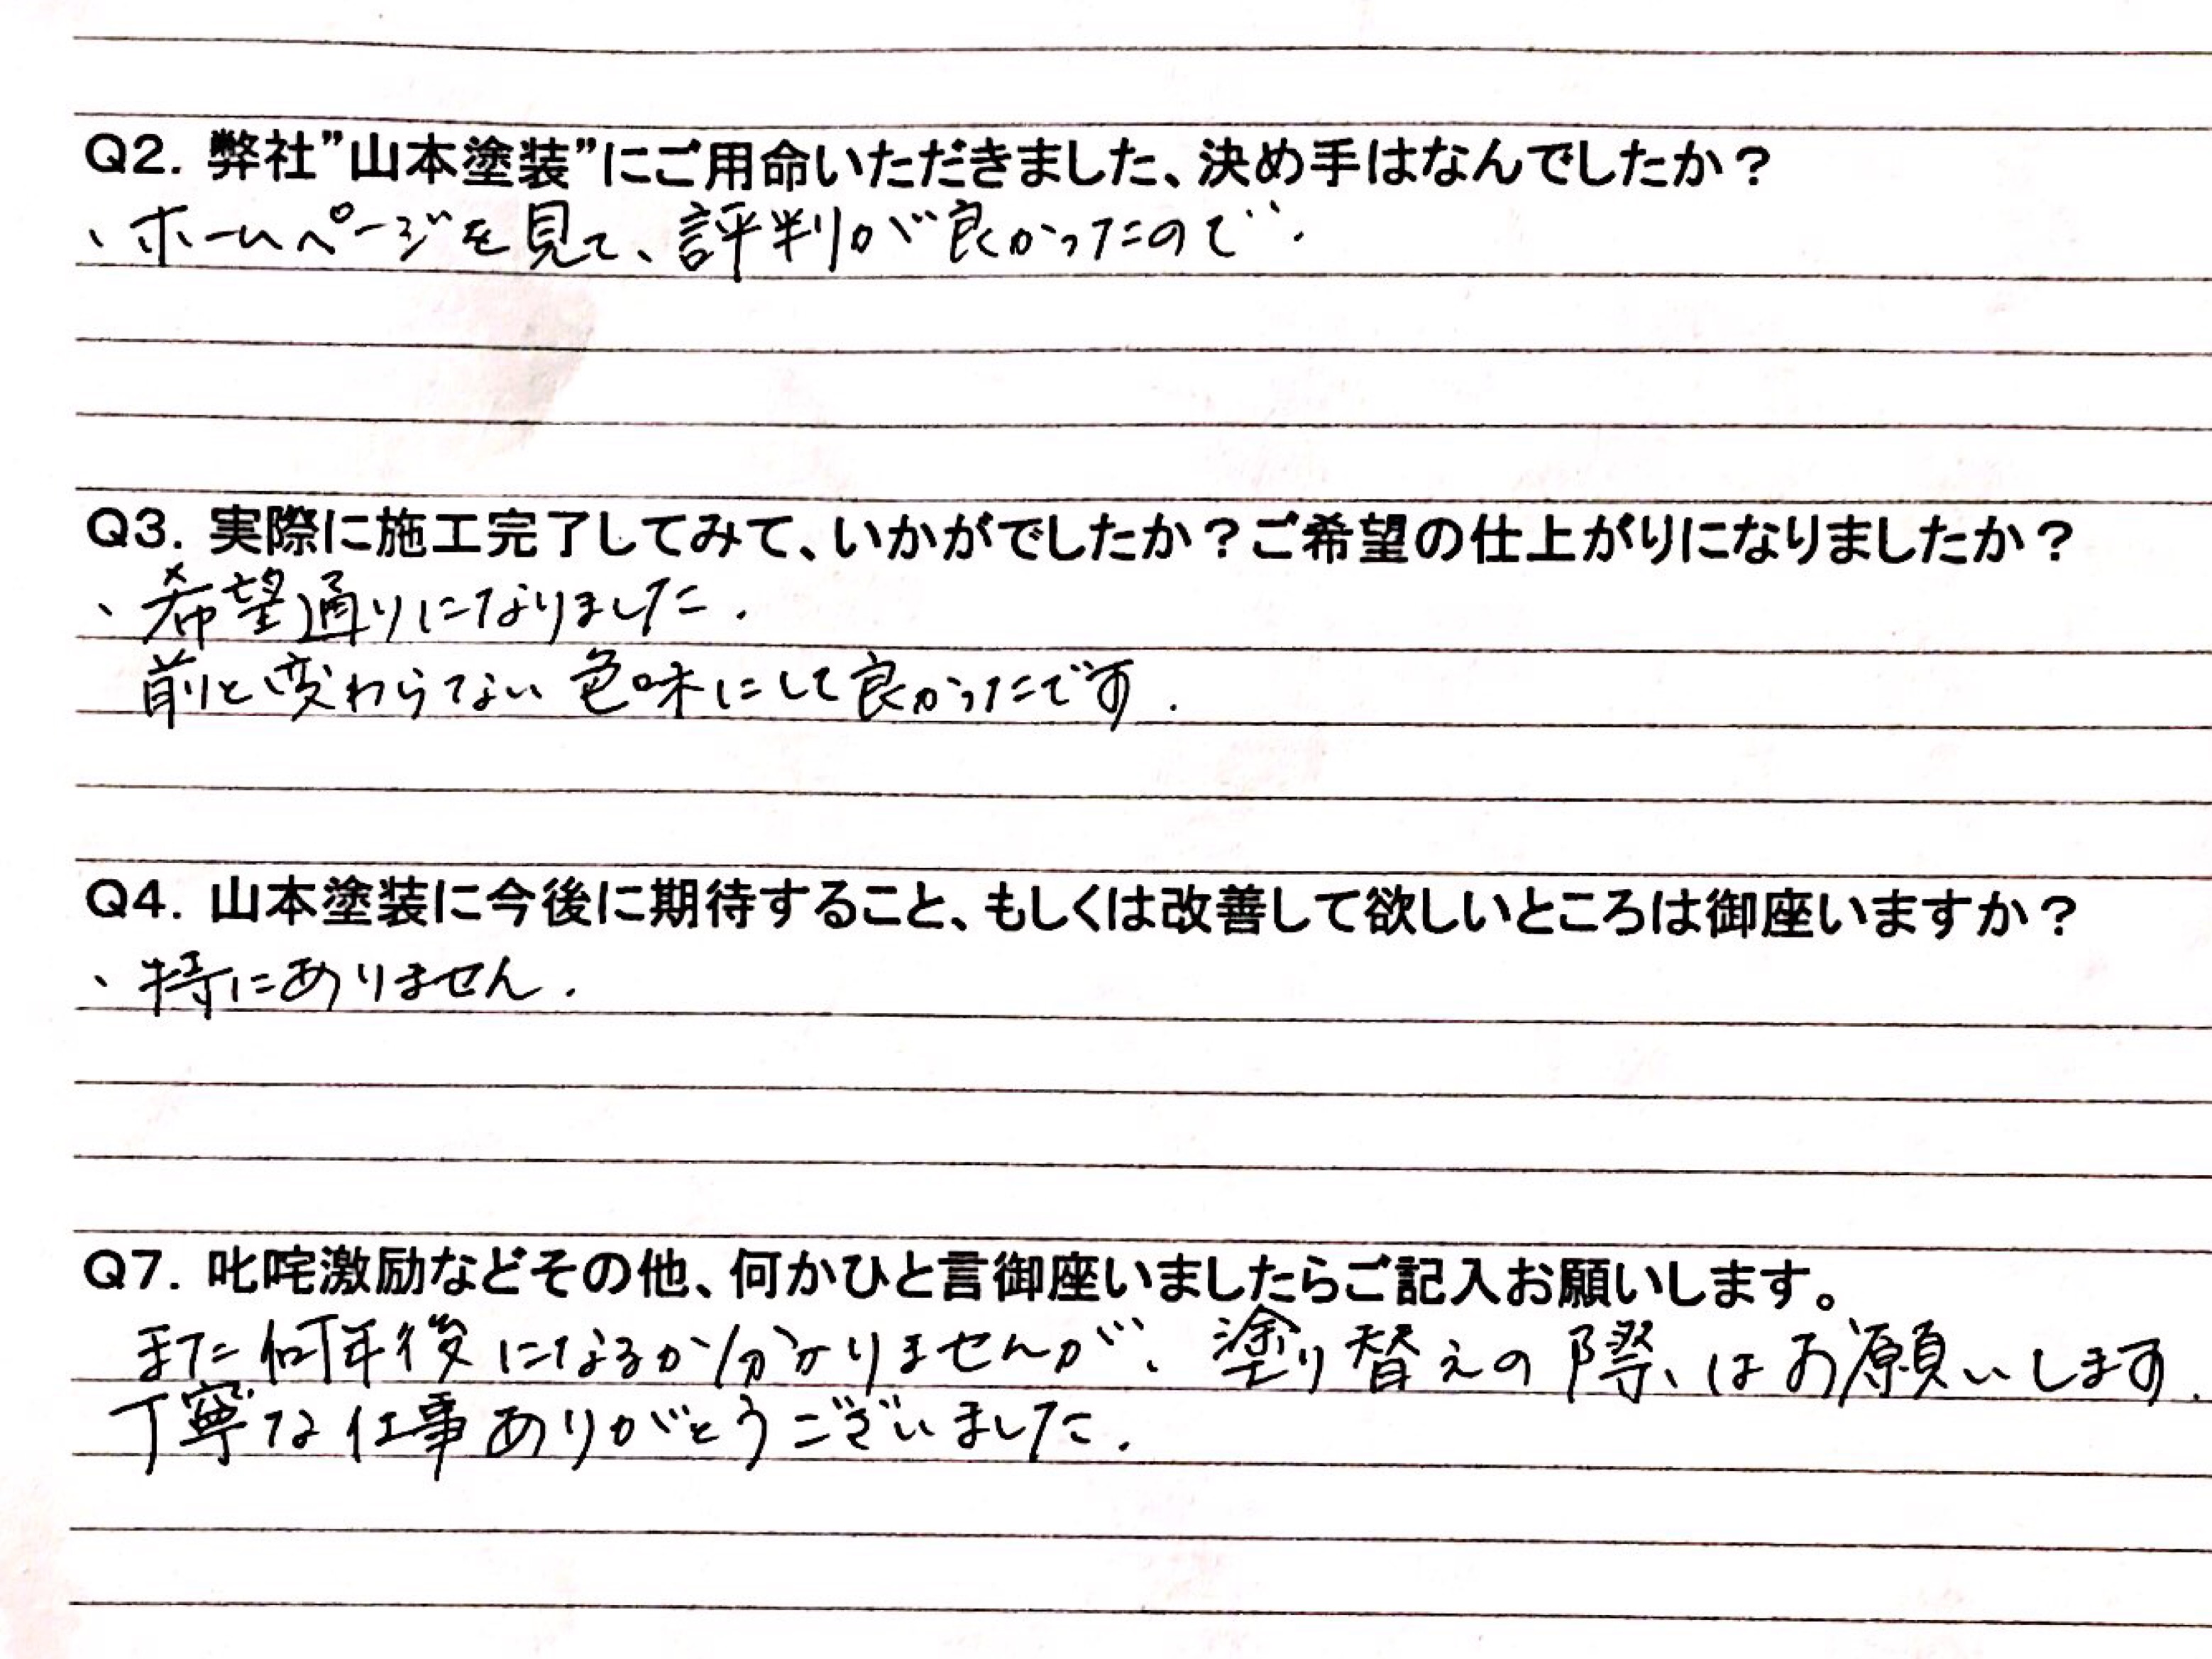 Q2. 弊社”山本塗装”にご用命いただきました、決め手はなんでしたか？
、ホームページを見て、評判が良かったので.
Q3. 実際に施工完了してみて、いかがでしたか？ご希望の仕上がりになりましたか？
、希望通りになりました.
前と変わらない色味にして良かったです.
Q4. 山本塗装に今後に期待すること、もしくは改善して欲しいところは御座いますか？
、特にありません.
Q7. 叱咤激励などその他、何かひと言御座いましたらご記入お願いします。
また何年後になるか分かりませんが、塗り替えの際、はお願いします.
丁寧な仕事ありがとうございました.